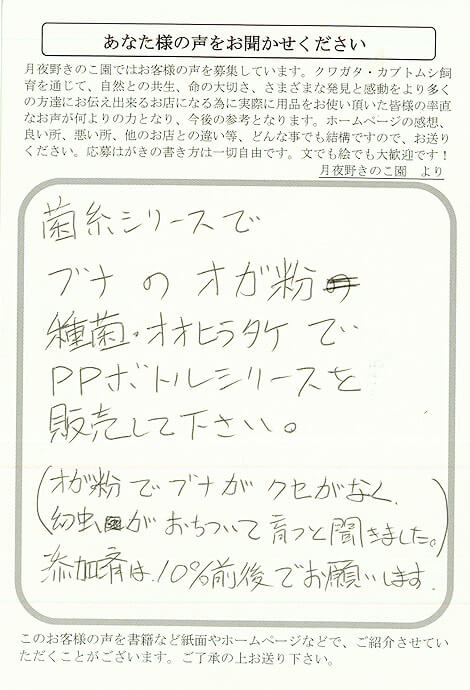 あなた様の声をお聞かせください
月夜野きのこ園ではお客様の声を募集しています。クワガタ・カブトムシ飼
育を通じて、自然との共生、命の大切さ、さまざまな発見と感動をより多く
の方達にお伝え出来るお店になる為に実際に用品をお使い頂いた皆様の率直
なお声が何よりの力となり、今後の参考となります。ホームページの感想、
良い所、悪い所、他のお店との違い等、どんな事でも結構ですので、お送り
ください。応募はがきの書き方は一切自由です。文でも絵でも大歓迎です！
月夜野きのこ園　より
菌糸シリースで
ブナ の オガ粉
種菌・オオヒラタケ で
PPボトルシリースを
販売して下さい。
(オガ粉でブナがクセがなく、
幼虫がおちついて育つと聞きました。)
添加剤は、10%前後でお願いします。
このお客様の声を書籍など紙面やホームページなどで、ご紹介させてい
ただくことがございます。ご了承の上お送り下さい。